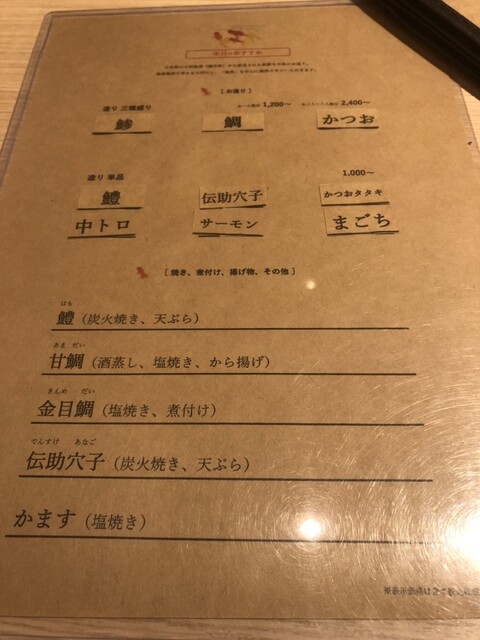 本日のおすすめ
[ お造り ]
造り 三種盛り 1,200〜 2,400〜
鯵 鯛 かつお
造り 単品 1,000〜
鱧 伝助穴子 かつおタタキ
中トロ サーモン まごち
[ 焼き、煮付け、揚げ物、その他 ]
はも
鱧(炭火焼き、天ぷら)
あま だい
甘鯛(酒蒸し、塩焼き、から揚げ)
きんめ だい
金目鯛(塩焼き、煮付け)
でんすけ あなご
伝助穴子(炭火焼き、天ぷら)
かます(塩焼き)
※表示価格は全て税込